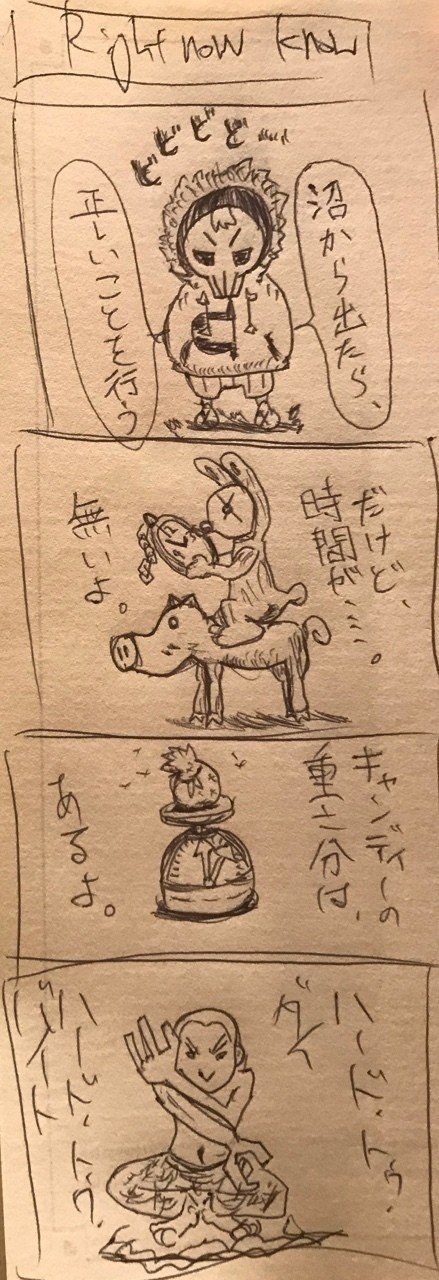 Right now know
沼から出たら、
正しいことを行う
だけど、
時間が…。
無いよ。
キャンディーの
重さ分は、
あるよ。
ハード・トゥ・
ダイ
ハード・トゥ・